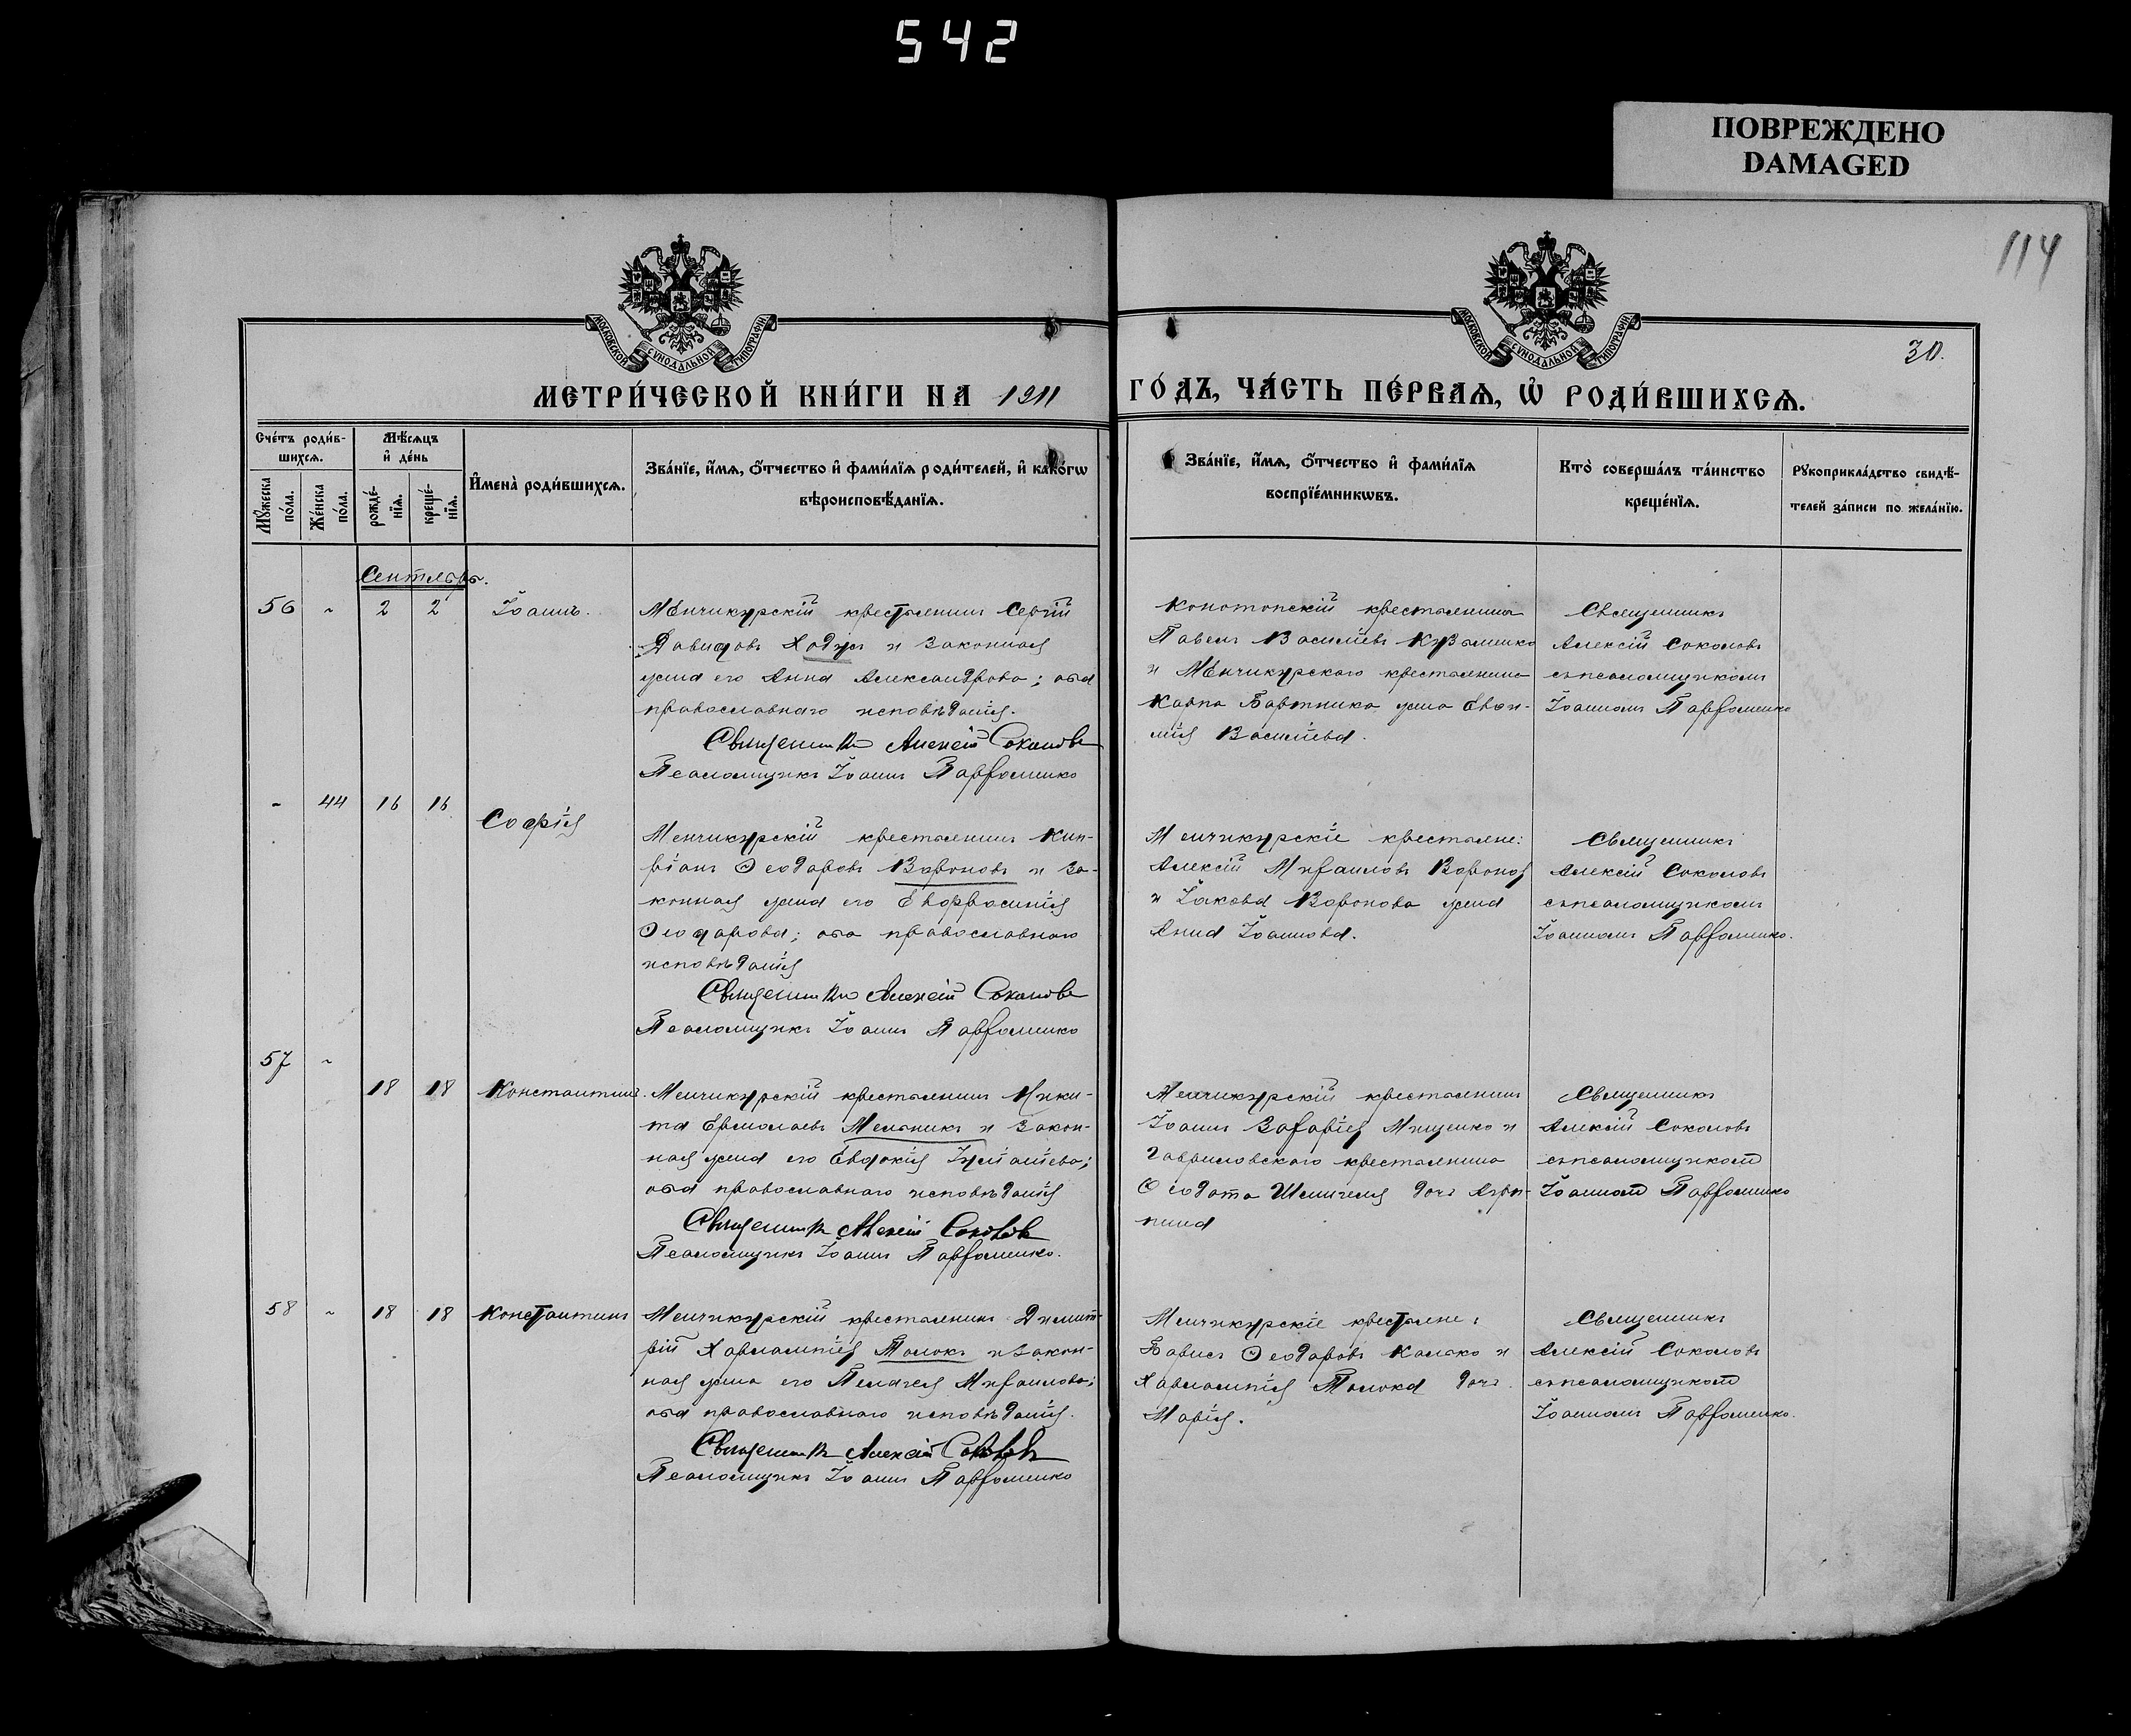 542
ПОВРЕЖДЕНО
DAMAGED
114
МОСКОВСКОЙ СѴНОДАЛЬНОЙ ТИПОГРАФІИ
МОСКОВСКОЙ СѴНОДАЛЬНОЙ ТИПОГРАФІИ
30.
МЕТРИ́ЧЕСКОЙ КНИ́ГИ НА 1911
ГО́ДЪ, ЧА́СТЬ ПЕ́РВАѦ, Ѡ҆ РОДИ́ВШИХСѦ.
Сче́тъ роди́в-
шихсѧ.
Мꙋ́жеска по́ла.
Же́нска по́ла.
Мѣ́сѧцъ
и҆ де́нь
рожде́-нїѧ.
креще́-нїѧ.
И҆мена̀ роди́вшихсѧ.
Зва́нїе, и҆́мѧ, ѻ҆́тчество и҆ фами́лїѧ роди́телей, и҆ како́гѡ
вѣроисповѣ́данїѧ.
Зва́нїе, и҆́мѧ, ѻ҆́тчество и҆ фами́лїѧ
воспрїе́мникѡвъ.
Кто̀ соверша́лъ та́инство
креще́нїѧ.
Рꙋкоприкла́дство свидѣ́-
телей за́писи по жела́нїю.
Сентябрь.
56 - 2 2 Іоаннъ.
Менчикурскій крестьянинъ Сергій
Давидовъ Ходусъ и законная
жена его Анна Александрова; оба
православнаго исповѣданія.
Священникъ Алексій Соколовъ
Псаломщикъ Іоаннъ Парфоменко
Конотопскій крестьянинъ
Павелъ Василіевъ Кузьменко
и Менчикурскаго крестьянина
Карпа Бартника жена Евѳи-
мія Василіева.
Священникъ
Алексій Соколовъ
съ псаломщикомъ
Іоанномъ Парфоменко
- 44 16 16 Софія
Менчикурскій крестьянинъ Кип-
ріанъ Ѳеодоровъ Вороновъ и за-
конная жена его Евфросинія
Ѳеодорова; оба православнаго
исповѣданія
Священникъ Алексій Соколовъ
Псаломщикъ Іоаннъ Парфоменко
Менчикурскіе крестьяне:
Алексій Михаиловъ Воронов
и Іакова Воронова жена
Анна Іоаннова.
Священникъ
Алексій Соколовъ
съ псаломщикомъ
Іоанномъ Парфоменко.
57 - 18 18 Константинъ.
Менчикурскій крестьянинъ Ники-
та Ермолаевъ Мельникъ и закон-
ная жена его Евдокія Игнатіева;
оба православнаго исповѣданія
Священникъ Алексій Соколовъ
Псаломщикъ Іоаннъ Парфоменко.
Менчикурскій крестьянинъ
Іоаннъ Захаріев Мищенко и
Гавриловскаго крестьянина
Ѳеодота дочь Агри-
пина
Священникъ
Алексій Соколовъ
съ псаломщикомъ
Іоанномъ Парфоменко
58 - 18 18 Константинъ
Менчикурскій крестьянинъ Димит-
рій Харлампіев Толокъ и закон-
ная жена его Пелагея Михаилова;
оба православнаго исповѣданія.
Священникъ Алексій Соколовъ
Псаломщикъ Іоаннъ Парфоменко
Менчикурскіе крестьяне:
Борисъ Ѳеодоровъ Калько и
Харлампія Толока дочь
Марія.
Священникъ
Алексій Соколовъ
съ псаломщикомъ
Іоанномъ Парфоменко.